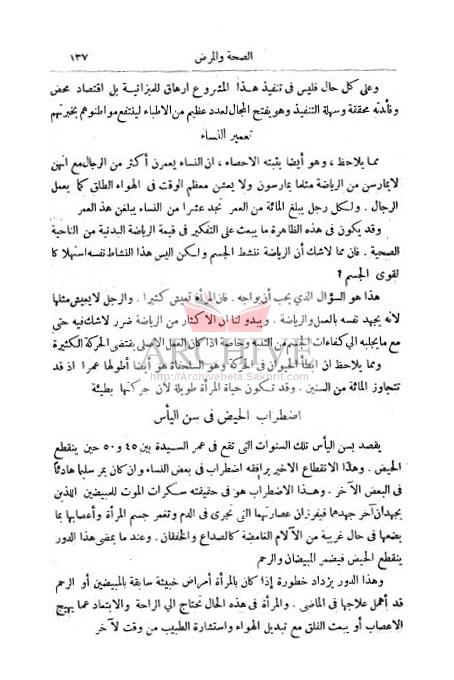 الصحة والمرض ١٣٧
وعلى كل حال فليس فى تنفيذ هذا المشروع ارهاق للميزانية بل اقتصاد محض
وفائدته محققة وسهلة التنفيذ وهو يفتح المجال لعدد عظيم من الاطباء لينتفع مواطنوهم بخبرتهم
تعمير النساء
مما يلاحظ ، وهو أيضا يثبته الاحصاء ، ان النساء يعمرن أكثر من الرجال مع انهن
لا يمارسن من الرياضة مثلما يمارسون ولا يعشن معظم الوقت فى الهواء الطلق كما يعمل
الرجال . ولكل رجل يبلغ المائة من العمر نجد عشرا من النساء يبلغن هذا العمر
وقد يكون فى هذه الظاهرة ما يبعث على التفكير فى قيمة الرياضة البدنية من الناحية
الصحية . فان مما لا شك أن الرياضة تنشط الجسم ولكن اليس هذا النشاط نفسه استهلاكا
لقوى الجسم ؟
هذا هو السؤال الذي يجب أن يواجه . فان المرأة تعيش كثيرا . والرجل لا يعيش مثلها
لأنه يجهد نفسه بالعمل والرياضة . ويبدو لنا ان الاكثار من الرياضة ضرر لا شك فيه حتى
مع ما يجلبه الى كفاءات الجسم من التنبه وخاصة اذا كان العمل الاصلى يقتضى الحركة الكثيرة
ومما يلاحظ ان ابطأ الحيوان فى الحركة وهو السلحفاة هو أيضا أطولها عمرا اذ قد
تتجاوز المائة من السنين . وقد تكون حياة المرأة طويلة لأن حركتها بطيئة
ARCHIVE
http://Archivebeta.Sakhrit.com
اضطراب الحيض فى سن اليأس
يقصد بسن اليأس تلك السنوات التى تقع فى عمر السيدة بين ٤٥ و ٥٠ حين ينقطع
الحيض . وهذا الانقطاع الاخير يرافقه اضطراب فى بعض النساء وان كان يمر سليما هادئاً
فى البعض الآخر . وهذا الاضطراب هو فى حقيقته سكرات الموت للمبيضين اللذين
يجهدان آخر جهدهما فيفرزان عصارتهما التى تجرى فى الدم وتغمر جسم المرأة وأعصابها بما
يضعها فى حال غريبة من الآلام الغامضة كالصداع والخفقان . وعند ما يمضى هذا الدور
ينقطع الحيض فيضمر المبيضان والرحم
وهذا الدور يزداد خطورة إذا كان بالمرأة أمراض خبيثة سابقة بالمبيضين أو الرحم
قد أهمل علاجها فى الماضى . والمرأة فى هذه الحال تحتاج الي الراحة والابتعاد عما يهيج
الاعصاب أو يبعث القلق مع تبديل الهواء واستشارة الطبيب من وقت لآخر